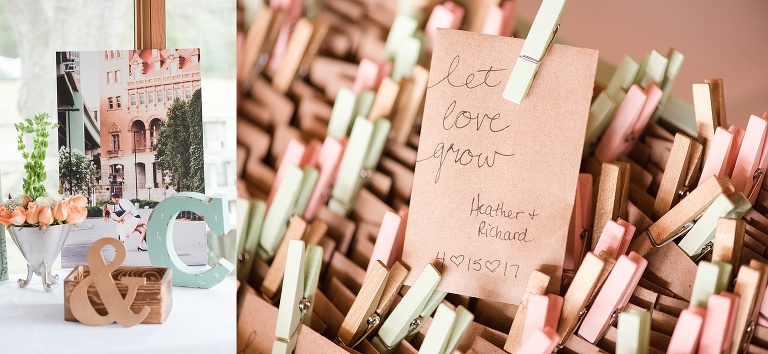 & C
let
love
grow
Heather +
Richard
4♡15♡17